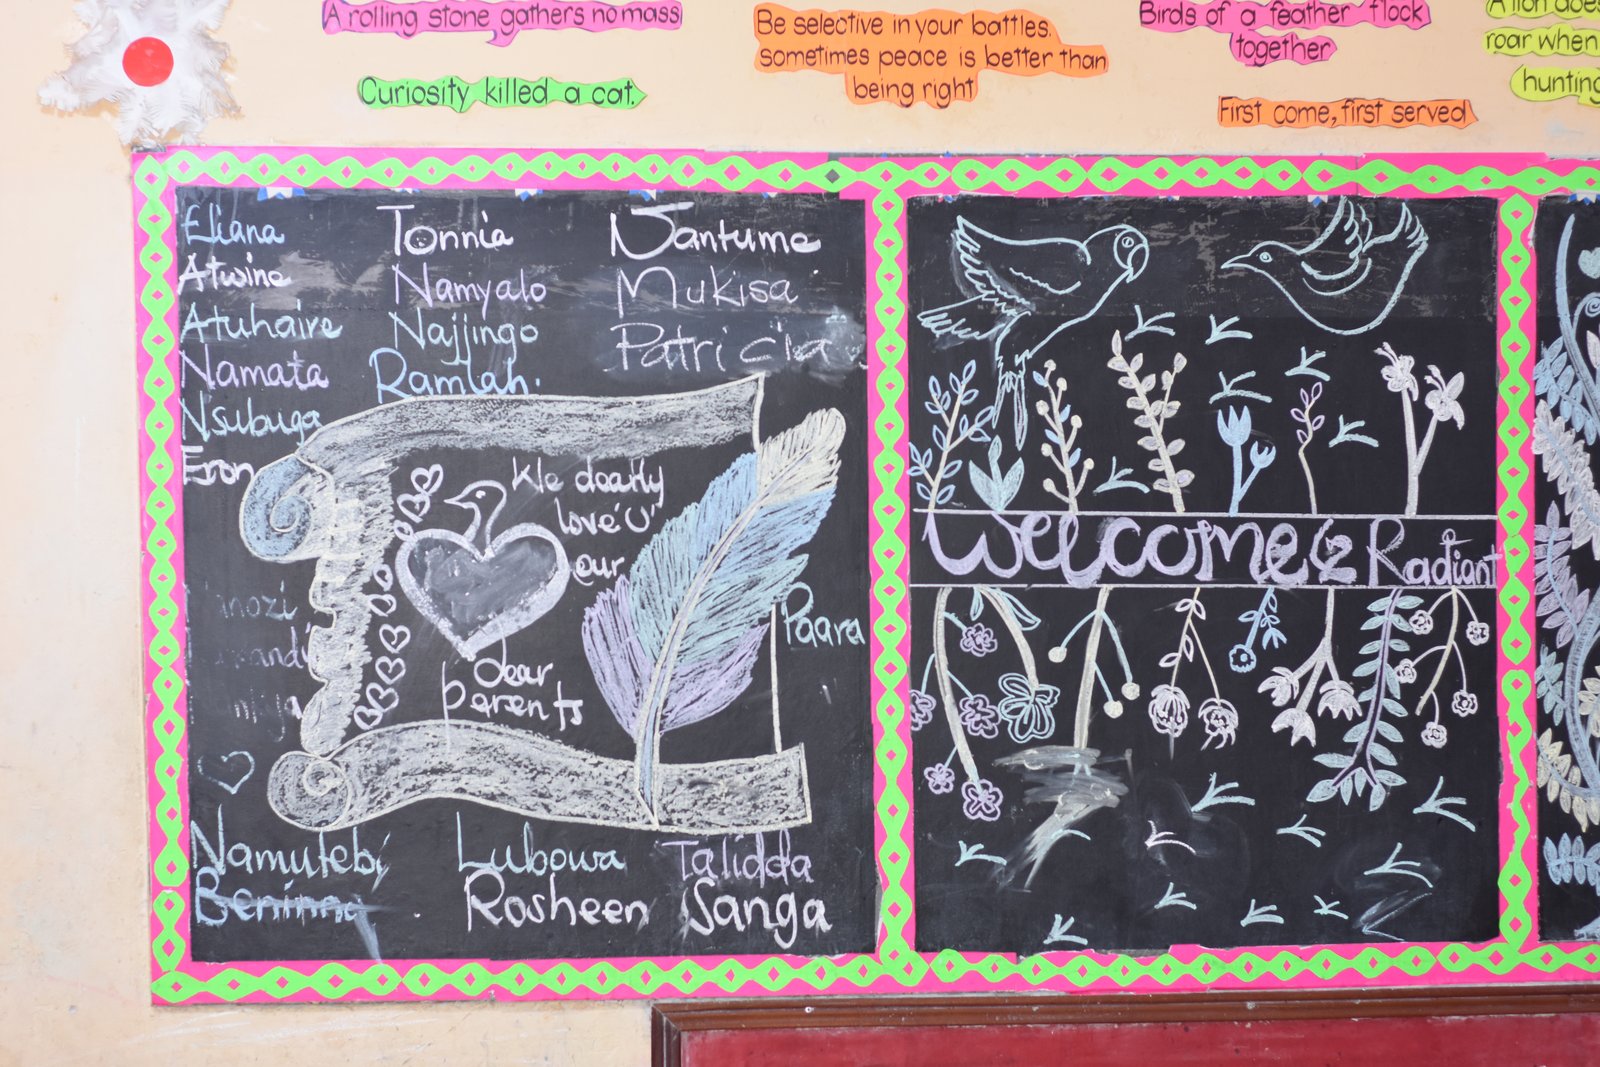 A rolling stone gathers no mass
Curiosity killed a cat.
Be selective in your battles,
sometimes peace is better than
being right
Birds of a feather flock
together
First come, first served
A lion does
roar when
hunting
Eliana
Atwine
Atuhaire
Namata
Nsubuga
Eron
Tonnia
Namyalo
Najjingo
Ramlah.
Nantume
Mukisa
Patricia
We dearly
love 'U'
our
dear
parents
Paara
Namutebi
Beninna
Lubowa
Rosheen
Talidda
Sanga
Welcome 2 Radiant